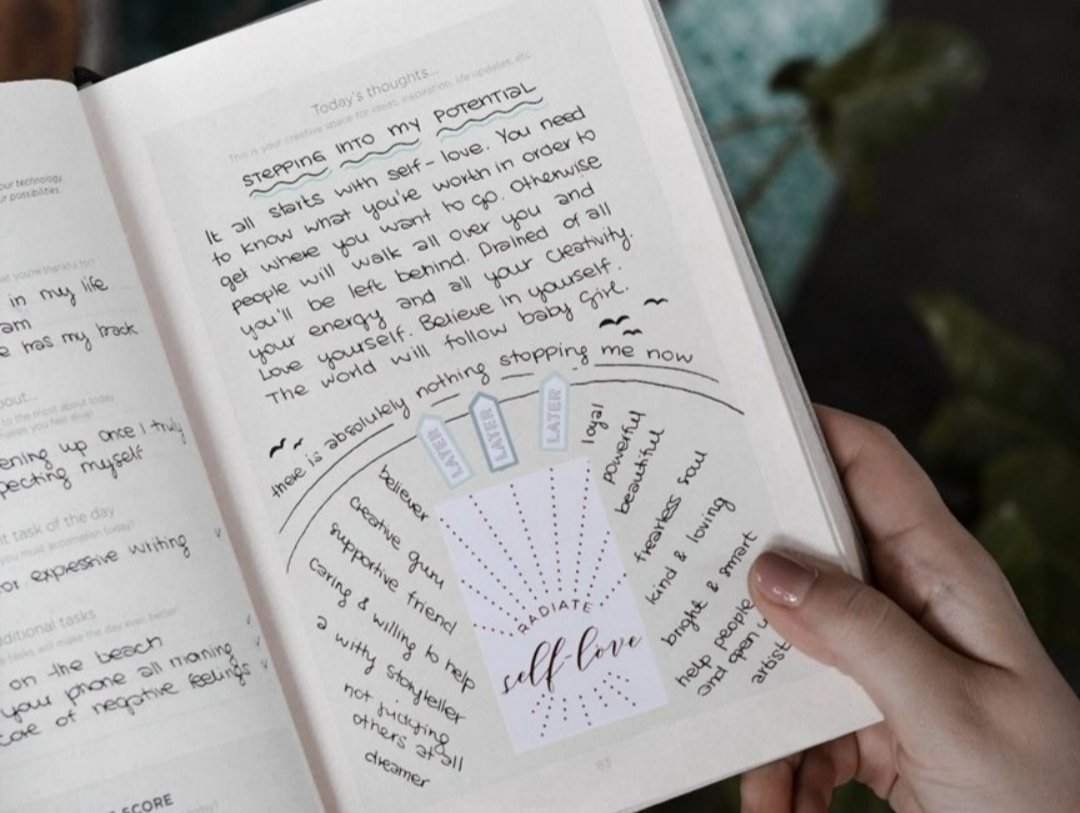 our technology
ur possibilities.
at you're thankful for?
in my life
am
e has my back
bout...
to the most about today
makes you feel alive?
ening up once I truly
pecting myself
nt task of the day
you must accomplish today?
or expressive writing
dditional tasks
e tasks, will make the day even better
on the beach
your phone all morning
care of negative feelings
SCORE
Today's thoughts...
This is your creative space for ideas, inspiration, life updates, etc.
STEPPING INTO MY POTENTIAL
It all starts with self-love. You need
to know what you're worth in order to
get where you want to go. Otherwise
people will walk all over you and
you'll be left behind. Drained of all
your energy and all your creativity.
Love yourself. Believe in yourself.
The world will follow baby girl.
there is absolutely nothing stopping me now
believer
creative guru
supportive friend
caring & willing to help
a witty storyteller
not judging
others at all
dreamer
LATER
LATER
LATER
RADIATE
self-love
loyal
powerful
beautiful
fearless soul
kind & loving
bright & smart
help people
and open u
artist
83